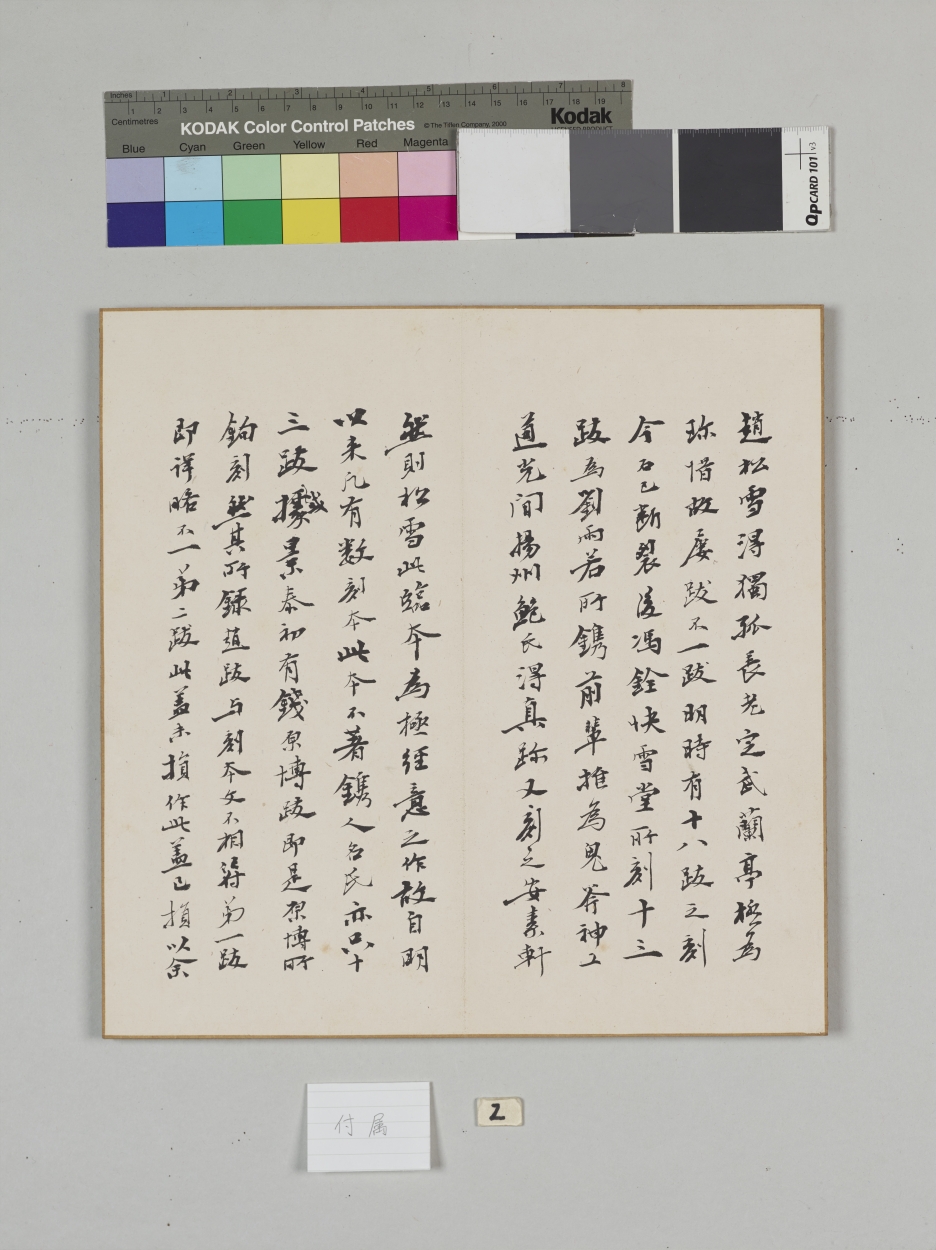 Inches 1 2 3 4 5 6 7 8
Centimetres 1 2 3 4 5 6 7 8 9 10 11 12 13 14 15 16 17 18 19
KODAK Color Control Patches © The Tiffen Company, 2000 Kodak
LICENSED PRODUCT
Blue Cyan Green Yellow Red Magenta
QPCARD 101 v3
趙松雪得獨孤長老定武蘭亭極為
珎惜故屢跋不一跋明時有十八跋之刻
今石已斷裂後馮銓快雪堂所刻十三
跋為劉雨若所鐫前輩推為鬼斧神工
道光间揚州鮑氏得真跡又刻之安素軒
然則松雪此臨本為極經意之作故自明
以来凡有数刻本此本不著鐫人名氏亦只十
三跋據戲景泰初有錢原博跋即是原博所
鉤刻然其所錄趙跋与刻本文不相符弟一跋
即详略不一弟二跋此盖未損作此盖已損以余
付属
2